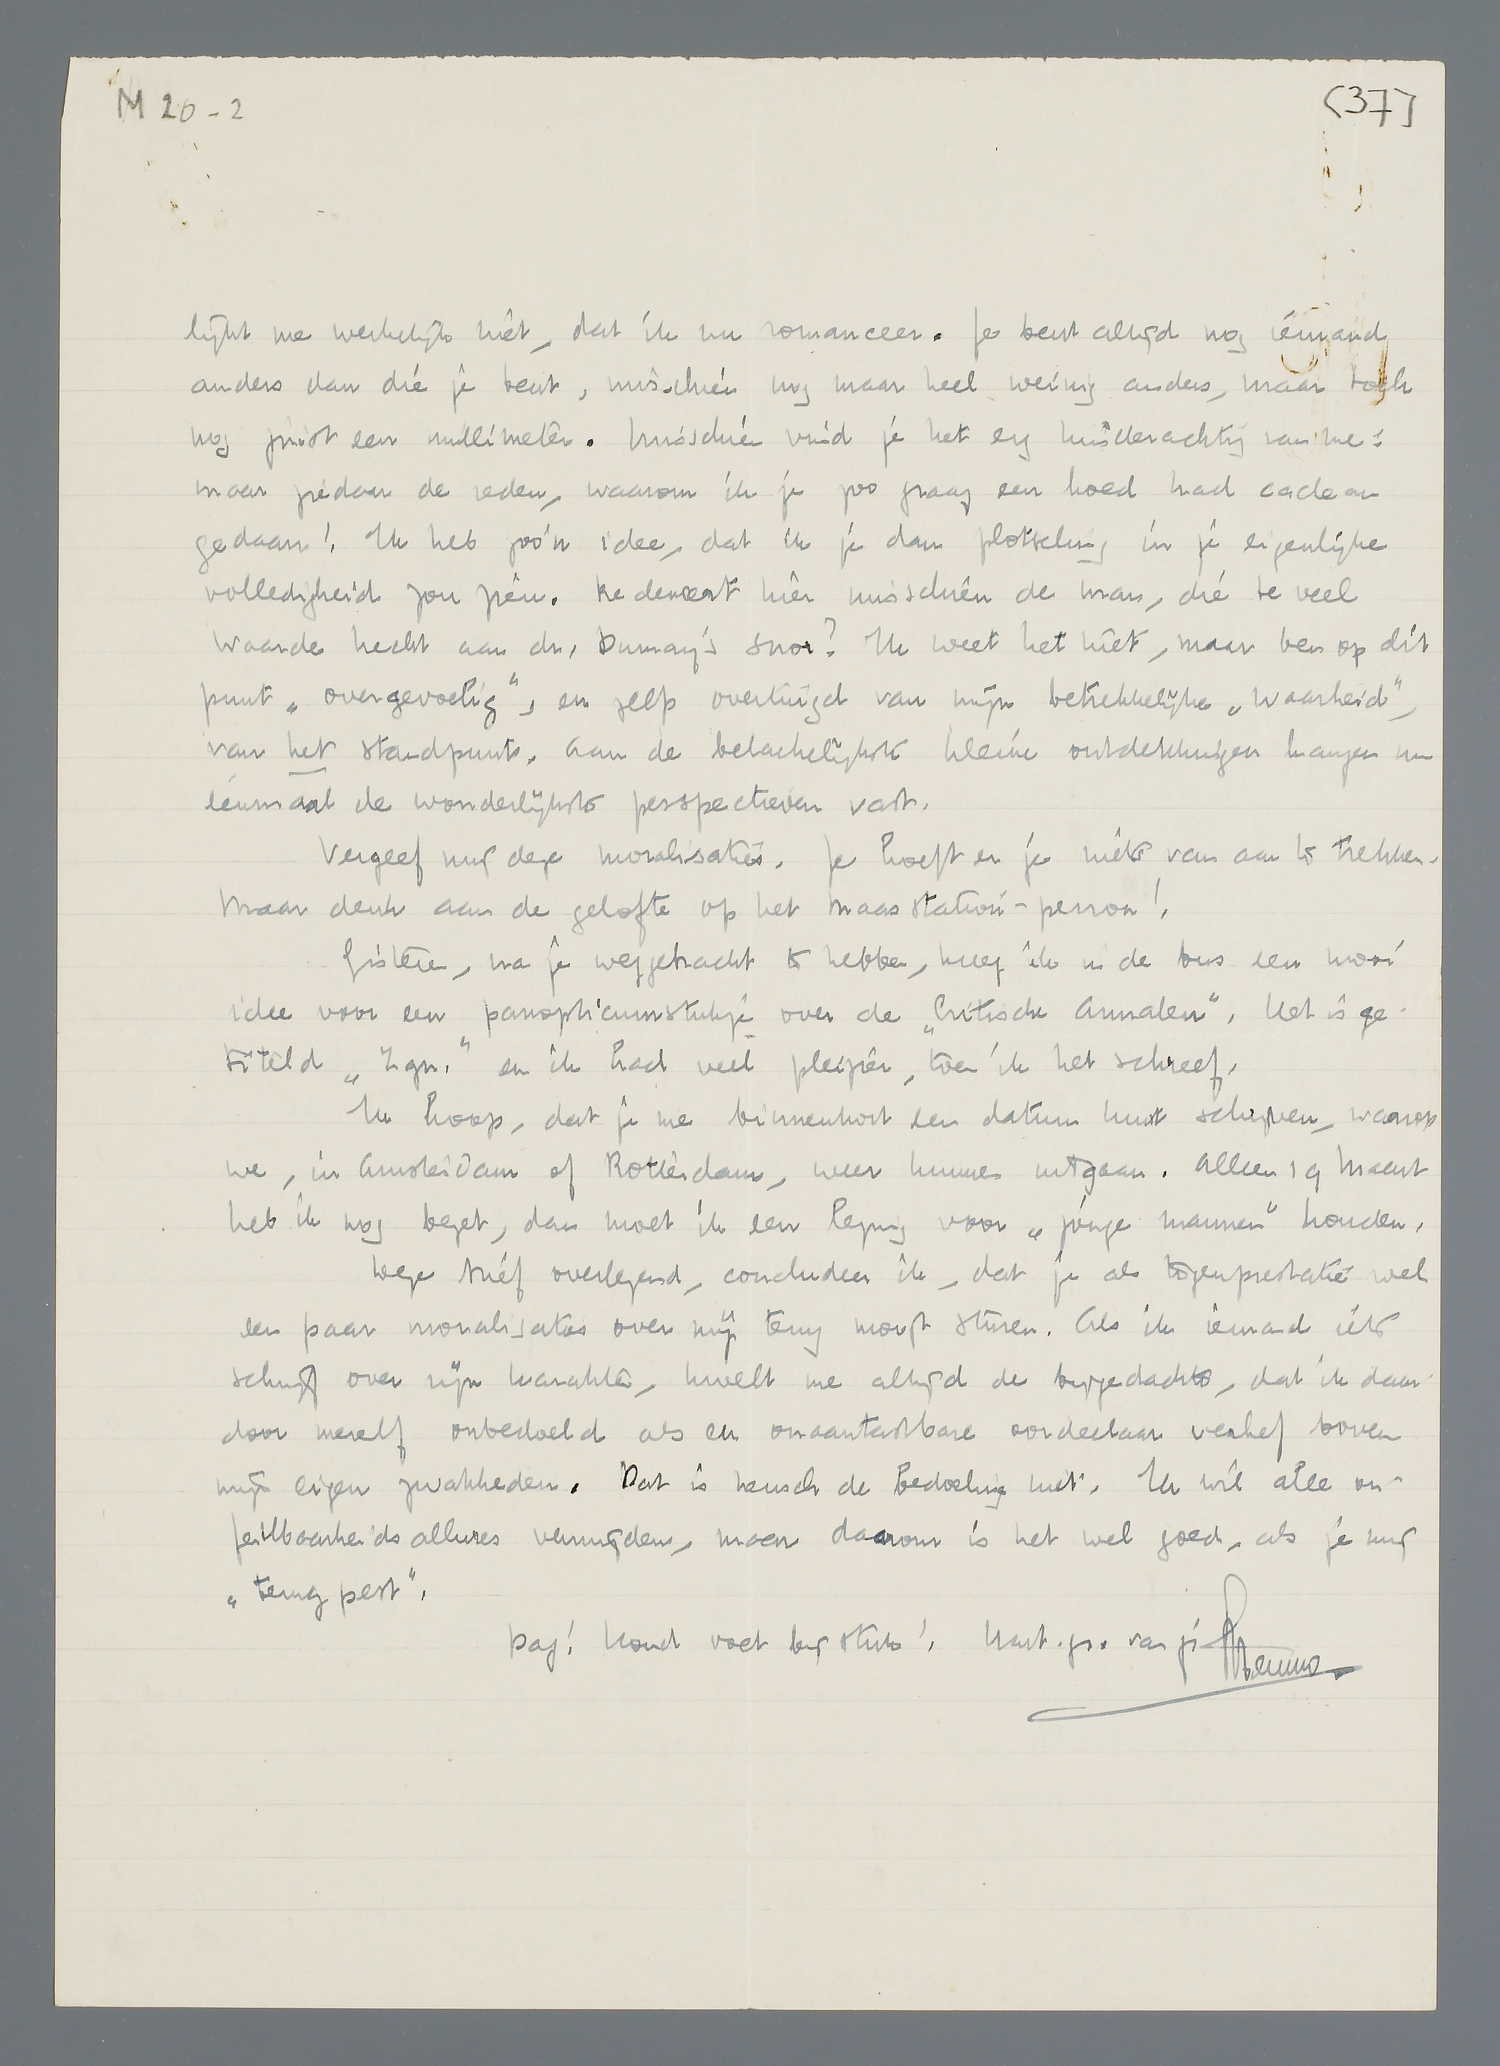 M 20-2
(37)
lijkt me werkelijk niet, dat ik nu romanceer. Je bent altijd nog iemand
anders dan die je bent, misschien nog maar heel weinig anders, maar toch
nog juist een millimeter. Misschien vind je het erg kinderachtig van me:
maar ziedaar de reden, waarom ik je zoo graag een hoed had cadeau
gedaan! Ik heb zoo'n idee, dat ik je dan plotseling in je eigenlijke
volledigheid zou zien. Redeneert hier misschien de man, die te veel
waarde hecht aan dr. Dumay's snor? Ik weet het niet, maar ben op dit
punt „overgevoelig", en zelfs overtuigd van mijn betrekkelijke „waarheid",
van het standpunt. Aan de belachelijkste kleine ontdekkingen hangen nu
eenmaal de wonderlijkste perspectieven vast.
Vergeef mij deze moralisaties. Je hoeft er je niets van aan te trekken.
Maar denk aan de gelofte op het Maasstation-perron!
Gisteren, na je weggebracht te hebben, kreeg ik in de bus een mooi
idee voor een panopticumstukje over de „Critische Annalen". Het is ge-
titeld „Zgn." en ik had veel pleizier, toen ik het schreef.
Ik hoop, dat je me binnenkort een datum kunt schrijven, waarop
we, in Amsterdam of Rotterdam, weer kunnen uitgaan. Alleen 19 Maart
heb ik nog bezet, dan moet ik een lezing voor „jonge mannen" houden.
Deze brief overlezend, concludeer ik, dat je als tegenprestatie wel
een paar moralisaties over mij terug moogt sturen. Als ik iemand iets
schrijf over zijn karakter, kwelt me altijd de bijgedachte, dat ik daar-
door mezelf onbedoeld als een onaantastbare oordeelaar verhef boven
mijn eigen zwakheden. Dat is heusch de bedoeling niet. Ik wil alle on-
feilbaarheidsallures vermijden, maar daarom is het wel goed, als je mij
„terugpest".
Dag! Houd voet bij stuk! Hart. gr. van je Menno